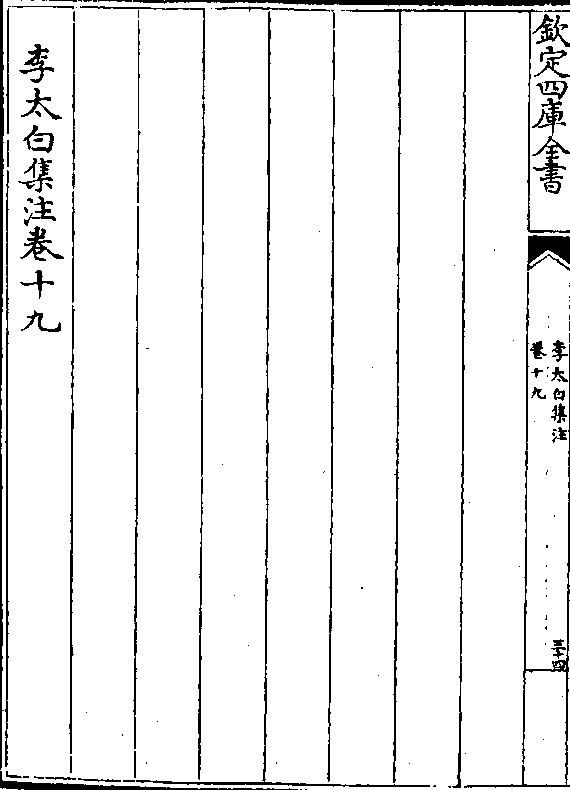 欽定四庫全書
李太白集注
卷十九
三十四
李太白集注卷十九